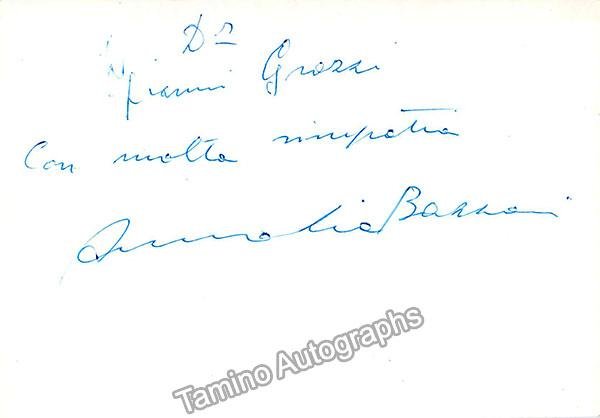 Dr
Gianni Grassi
Con molta simpatia
Bazzani
Tamino Autographs